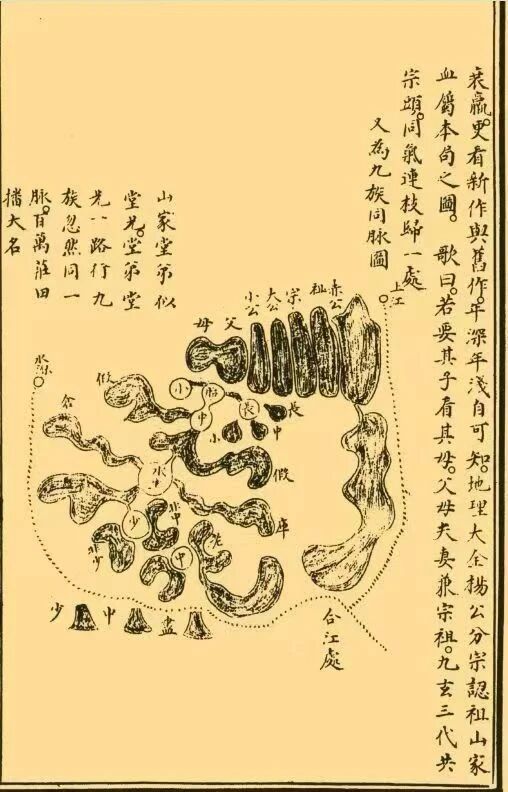 衰羸。更看新作與舊作。年深年淺自可知。地理大全楊公分宗認祖山家
血屬本句之圖。歌曰。若要其子看其母。父母夫妻兼宗祖。九玄三代共
宗頭。同氣連枝歸一處
又為九族同脉圖
上江
山家堂弟似
堂兄。堂弟堂
兄一路行九
族忽然同一
脉。百萬莊田
播大名
小公
大公
宗
祉
赤公
母
父
假
小
中
長
長
中
小
假
庫
水
中
少
少
中
合江處
少
中
孟